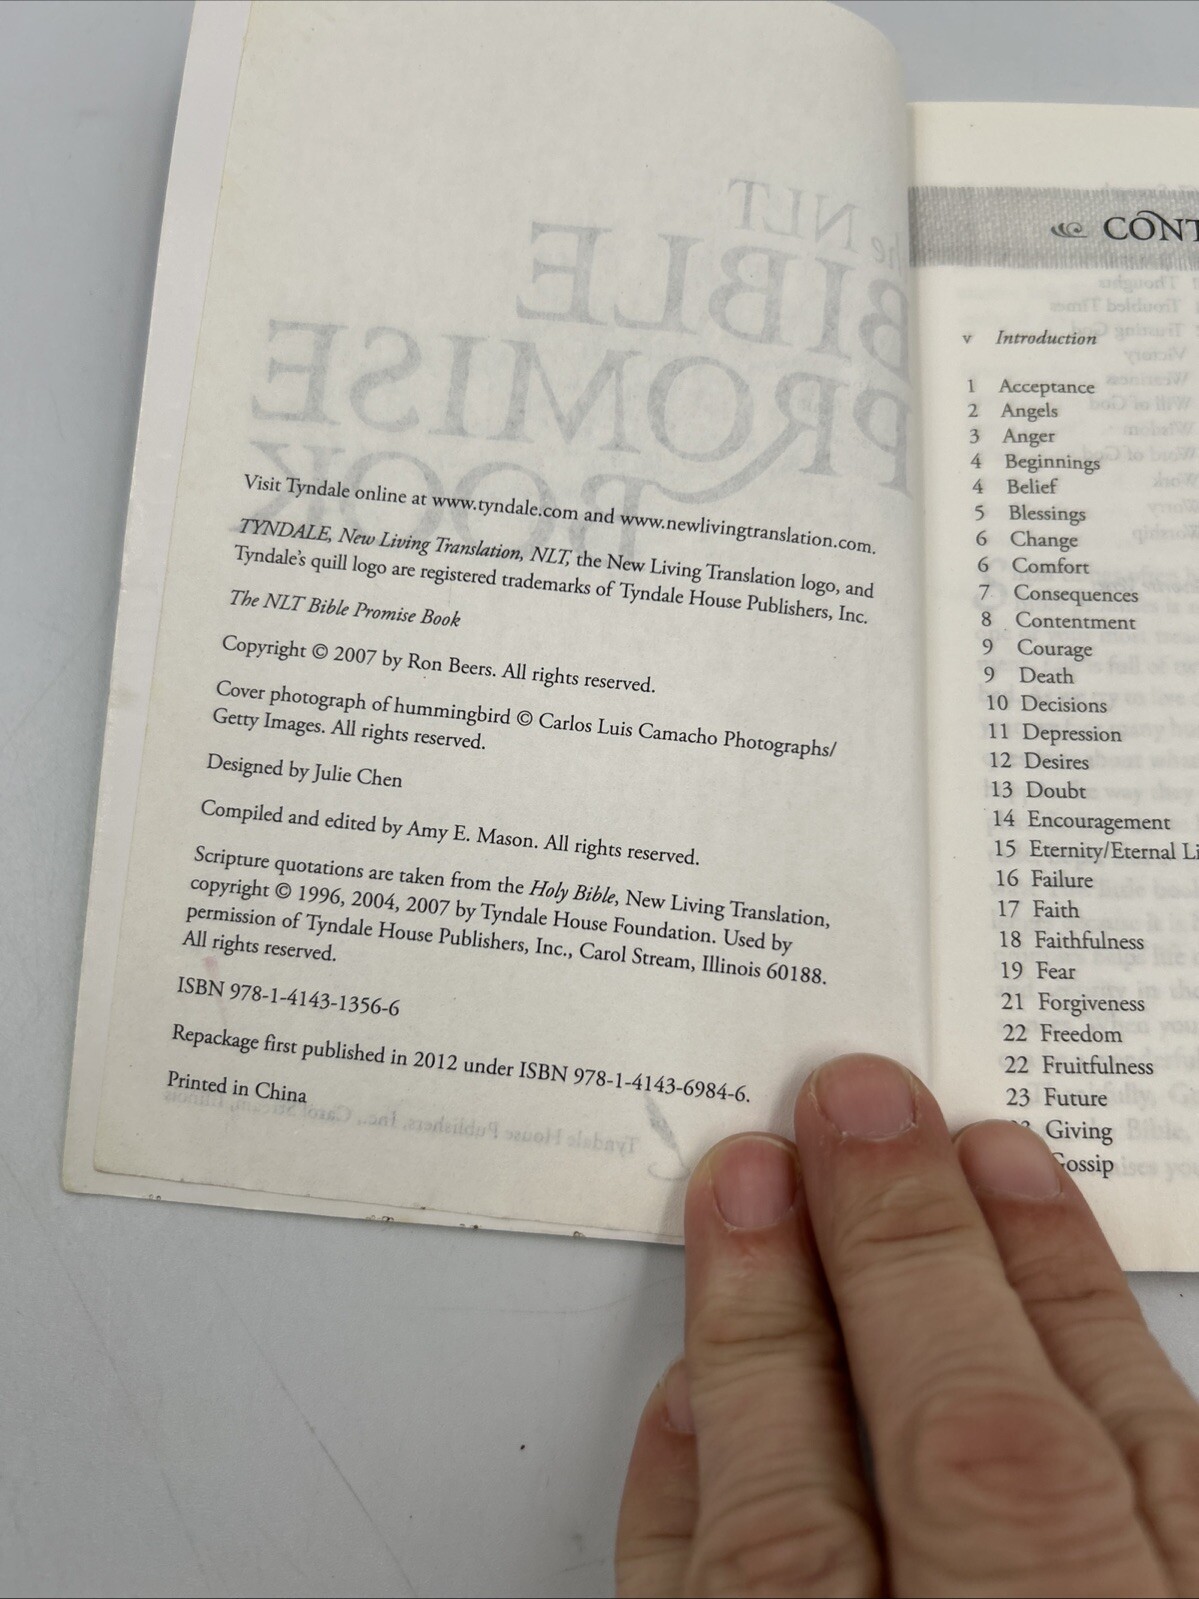 Visit Tyndale online at www.tyndale.com and www.newlivingtranslation.com.
TYNDALE, New Living Translation, NLT, the New Living Translation logo, and
Tyndale's quill logo are registered trademarks of Tyndale House Publishers, Inc.
The NLT Bible Promise Book
Copyright © 2007 by Ron Beers. All rights reserved.
Cover photograph of hummingbird © Carlos Luis Camacho Photographs/
Getty Images. All rights reserved.
Designed by Julie Chen
Compiled and edited by Amy E. Mason. All rights reserved.
Scripture quotations are taken from the Holy Bible, New Living Translation,
copyright © 1996, 2004, 2007 by Tyndale House Foundation. Used by
permission of Tyndale House Publishers, Inc., Carol Stream, Illinois 60188.
All rights reserved.
ISBN 978-1-4143-1356-6
Repackage first published in 2012 under ISBN 978-1-4143-6984-6.
Printed in China
CONT
v Introduction
1 Acceptance
2 Angels
3 Anger
4 Beginnings
4 Belief
5 Blessings
6 Change
6 Comfort
7 Consequences
8 Contentment
9 Courage
9 Death
10 Decisions
11 Depression
12 Desires
13 Doubt
14 Encouragement
15 Eternity/Eternal Li
16 Failure
17 Faith
18 Faithfulness
19 Fear
21 Forgiveness
22 Freedom
22 Fruitfulness
23 Future
Giving
Gossip